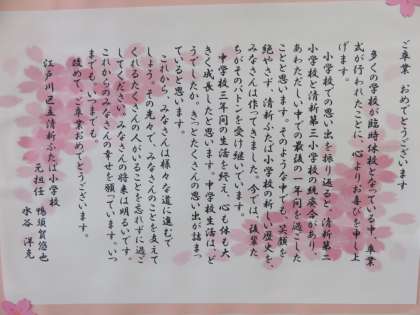 ご卒業 おめでとうございます
多くの学校が臨時休校となっている中、卒業
式が行われたことに、心よりお喜びを申し上
げます。
小学校での思い出を振り返ると、清新第二
小学校と清新第三小学校の統廃合があり、
あわただしい中での最後の一年間を過ごした
ことと思います。そのような中でも、笑顔を
絶やさず、清新ふたば小学校の新しい歴史を、
みなさんは作ってきました。今では、後輩た
ちがそのバトンを受け継いでいます。
中学校三年間の生活を終え、心も体も大
きく成長したと思います。中学校生活は、ど
うでしたか。きっとたくさんの思い出が詰まっ
ていると思います。
これから、みなさんは様々な道に進むで
しょう。その先々で、みなさんのことを支えて
くれるたくさんの人がいることを忘れずに過ご
してください。みなさんの将来は明るいです。
これからのみなさんの幸せを願っています。いつ
までも、いつまでも。
改めて、ご卒業おめでとうございます。
江戸川区立清新ふたば小学校
元担任 鴨須賀悠也
水谷 洋克